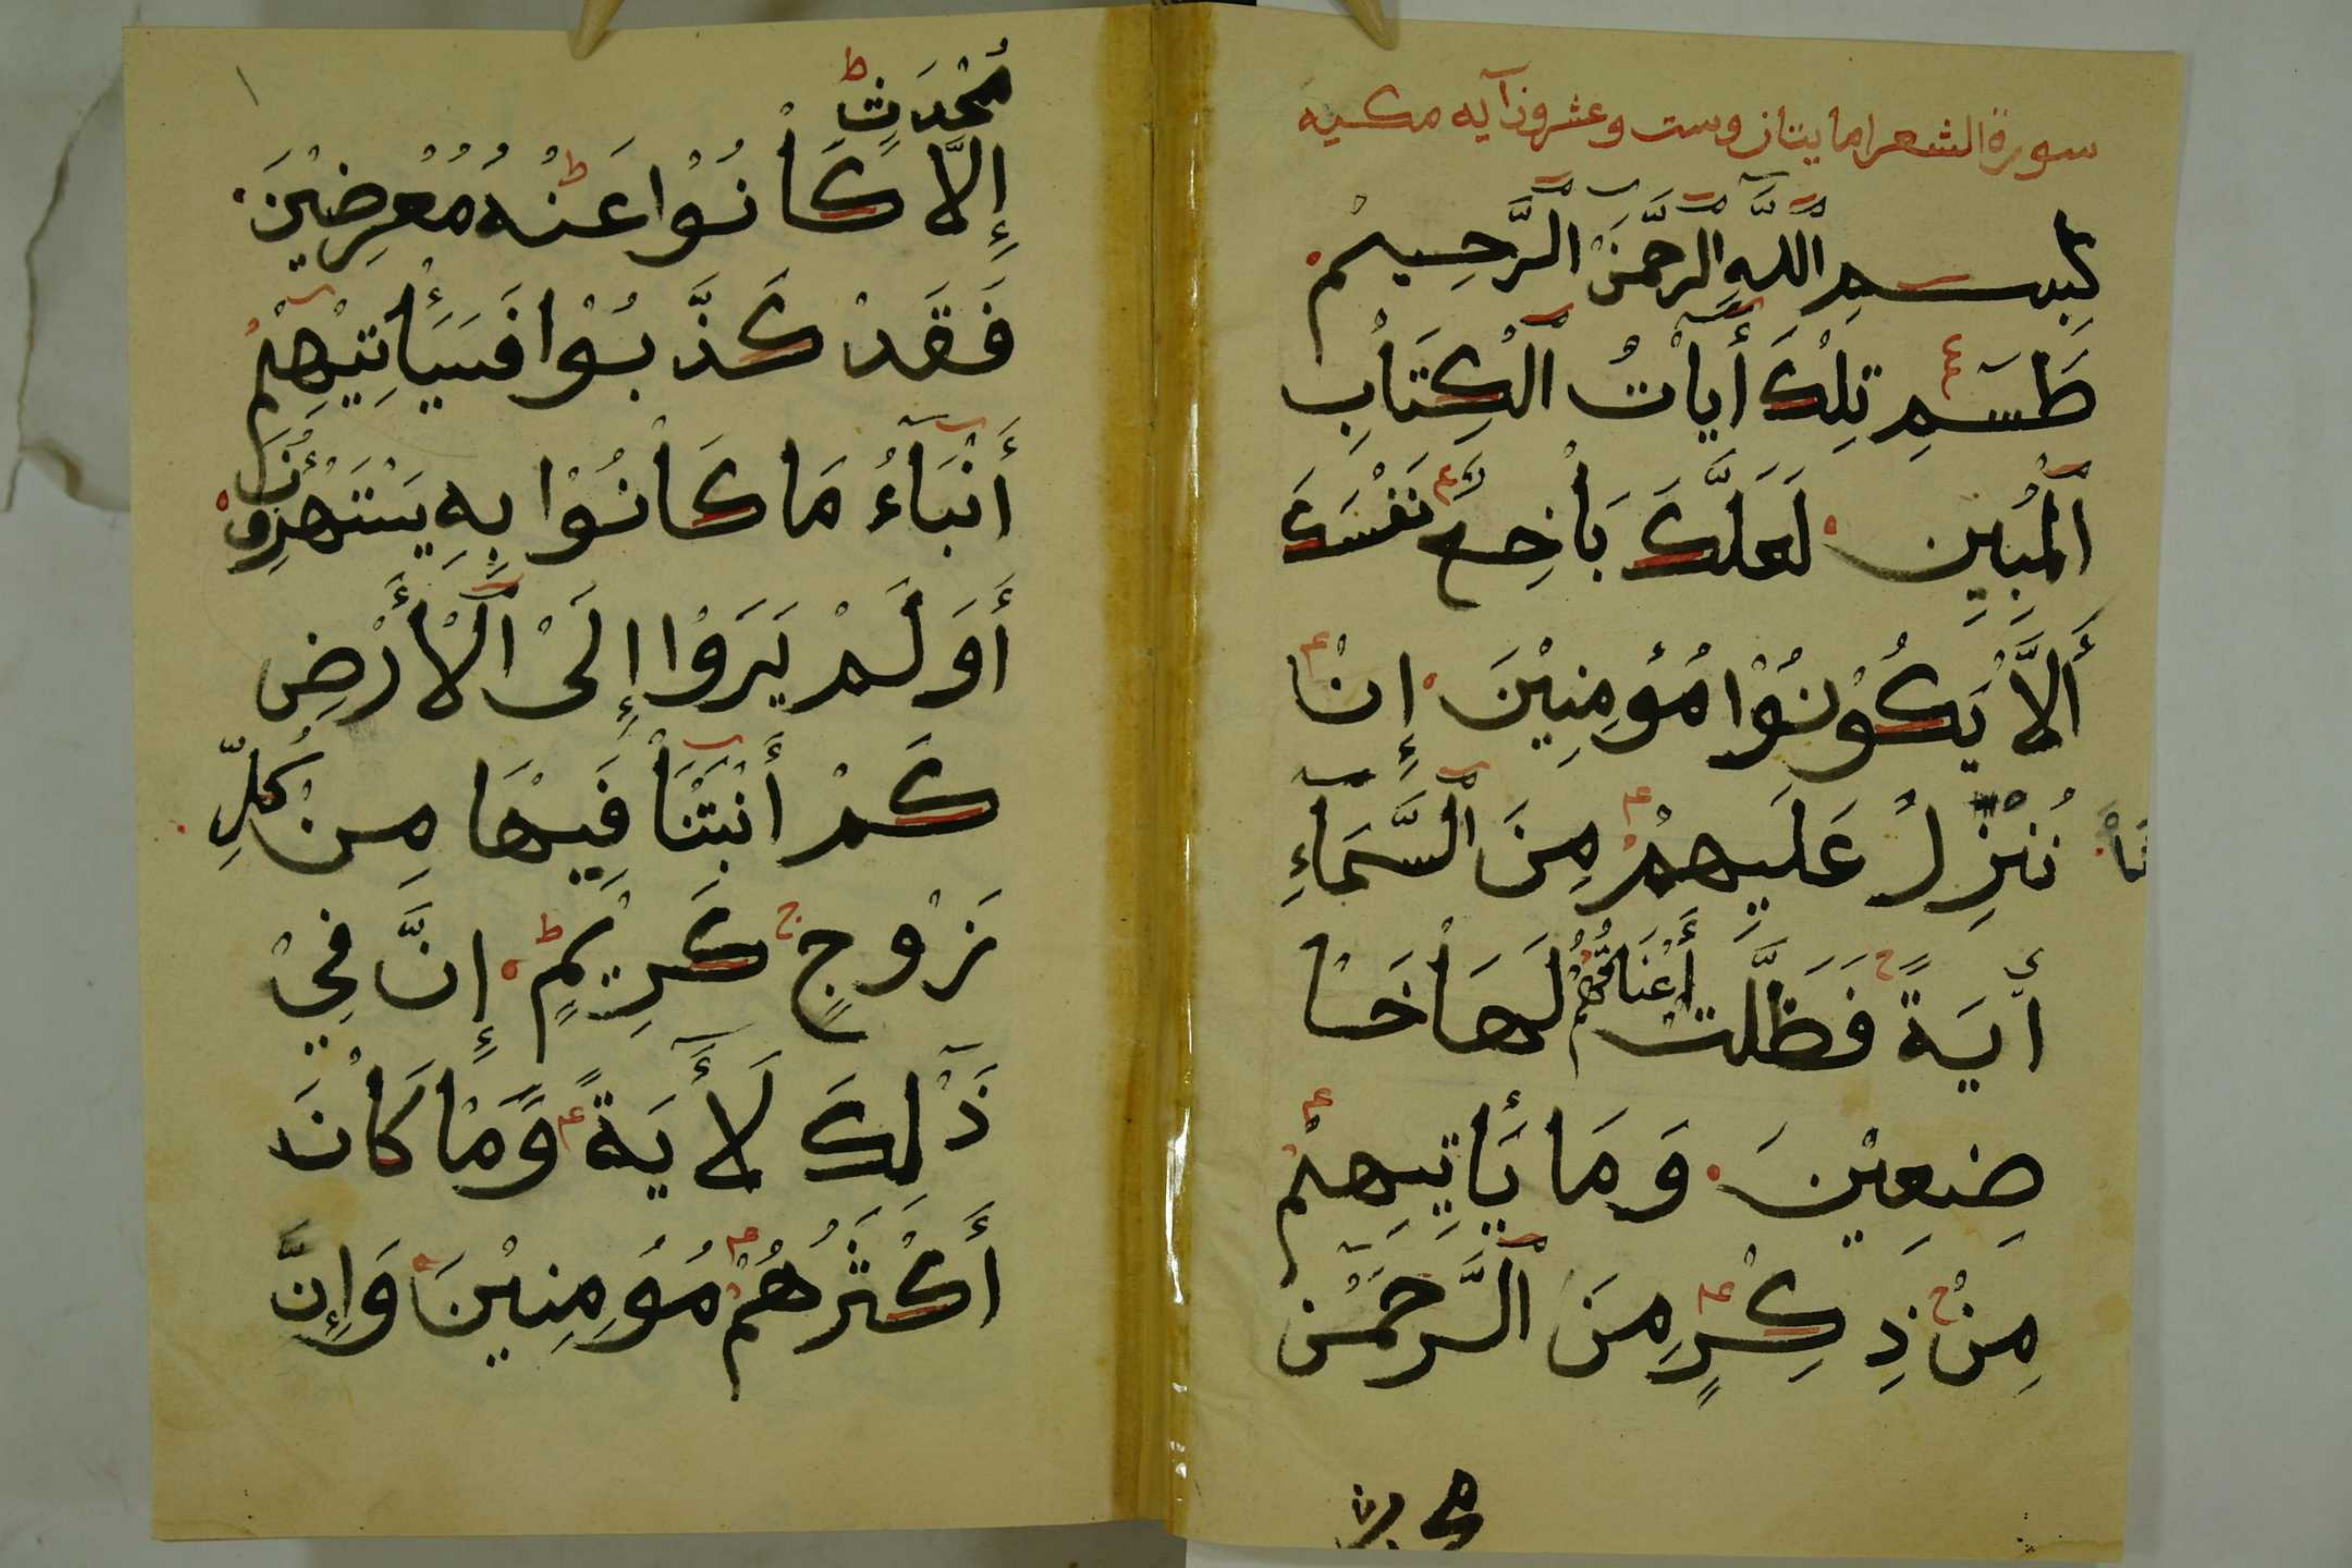 سورة الشعرا مايتان وست وعشرون آيه مكيه
بِسْمِ اللَّهِ الرَّحْمَنِ الرَّحِيمِ
طَسَمِ تِلْكَ أَيَاْتُ اَلْكِتَاْبِ
اَلْمُبِيِنِ لَعَلَّكَ بَاْخِعٌ نَفْسَكَ
أَلاَّ يَكُوْنُوْا مُؤْمِنِيْنَ إِنْ
نَاْ نُنْزِلُ عَلَيِهِمْ مِنَ اَلسَّمَآءِ
أَيَةً فَظَلَّتْ أَعْنَاقُهُمْ لَهَاْ خَاْ
ضِعِيْنَ وَمَا يَأتِيِهِمْ
مِنْ ذِكْرٍ مِنَ اَلرَّحْمَنِ
مُحْدَثٍ
إِلاَّ كَاْنُوْا عَنْهُ مُعْرِضِيْنَ
فَقَدْ كَذَّبُوْا فَسَيَأْتِيْهِمْ
أَنْبَآءُ مَا كَاْنُوْا بِهِ يَسْتَهْزِؤُنَ
أَوَلَمْ يَرَوْا إِلَىْ اَلْأَرْضِ
كَمْ أَنْبَتْنَاْ فِيْهَا مِنْ كُلِّ
زَوْجٍ كَرِيْمٍ إِنَّ فِيْ
ذَلِكَ لَأَيَةً وَّمَاْ كَاْنَ
أَكْثَرُهُمْ مُؤمِنِيْنَ وَإِنَّ